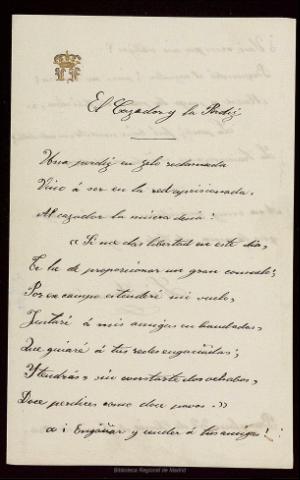 El Cazador y la Perdiz
Una perdiz en zelo reclamada
Vino á ser en la red aprisionada.
Al cazador la mísera decía:
"Si me das libertad en este día,
Te he de proporcionar un gran consuelo;
Por ese campo extenderé mi vuelo,
Juntaré á mis amigas en bandadas,
Que guiaré á tus redes engañadas;
Y tendrás, sin costarte dos ochavos,
Doce perdices como doce pavos."
"¡Engañar y vender á tus amigas!
Biblioteca Regional de Madrid